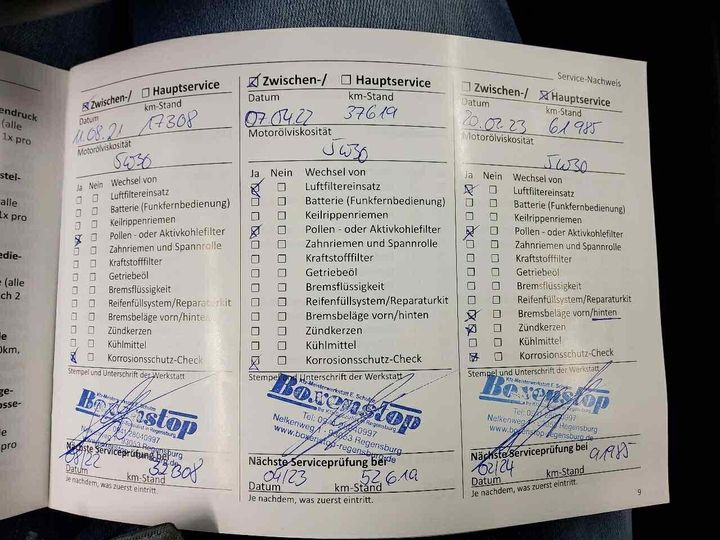 endruck
(alle
1x pro
stel-
(alle
1x pro
edie-
(alle
ch 2
0km,
ge-
osse-
pro
Zwischen-/ Hauptservice
Datum km-Stand
11.08.21 17308
Motorölviskosität
5W30
Ja Nein Wechsel von
Luftfiltereinsatz
Batterie (Funkfernbedienung)
Keilrippenriemen
Pollen - oder Aktivkohlefilter
Zahnriemen und Spannrolle
Kraftstofffilter
Getriebeöl
Bremsflüssigkeit
Reifenfüllsystem/Reparaturkit
Bremsbeläge vorn/hinten
Zündkerzen
Kühlmittel
Korrosionsschutz-Check
Stempel und Unterschrift der Werkstatt
Kfz-Meisterwerkstatt E. Schulze
Boxenstop
Nächste Serviceprüfung bei
08/22
Datum km-Stand
Je nachdem, was zuerst eintritt.
Zwischen-/ Hauptservice
Datum km-Stand
07.04.22 37619
Motorölviskosität
5W30
Ja Nein Wechsel von
Luftfiltereinsatz
Batterie (Funkfernbedienung)
Keilrippenriemen
Pollen - oder Aktivkohlefilter
Zahnriemen und Spannrolle
Kraftstofffilter
Getriebeöl
Bremsflüssigkeit
Reifenfüllsystem/Reparaturkit
Bremsbeläge vorn/hinten
Zündkerzen
Kühlmittel
Korrosionsschutz-Check
Stempel und Unterschrift der Werkstatt
Boxenstop
Nelkenweg 93053 Regensburg
Nächste Serviceprüfung bei
04/23 52619
Datum km-Stand
Je nachdem, was zuerst eintritt.
Service-Nachweis
Zwischen-/ Hauptservice
Datum km-Stand
20.02.23 61985
Motorölviskosität
5W30
Ja Nein Wechsel von
Luftfiltereinsatz
Batterie (Funkfernbedienung)
Keilrippenriemen
Pollen - oder Aktivkohlefilter
Zahnriemen und Spannrolle
Kraftstofffilter
Getriebeöl
Bremsflüssigkeit
Reifenfüllsystem/Reparaturkit
Bremsbeläge vorn/hinten
Zündkerzen
Kühlmittel
Korrosionsschutz-Check
Stempel und Unterschrift der Werkstatt
Boxenstop
Nächste Serviceprüfung bei
02/24 91985
Datum km-Stand
Je nachdem, was zuerst eintritt.
9